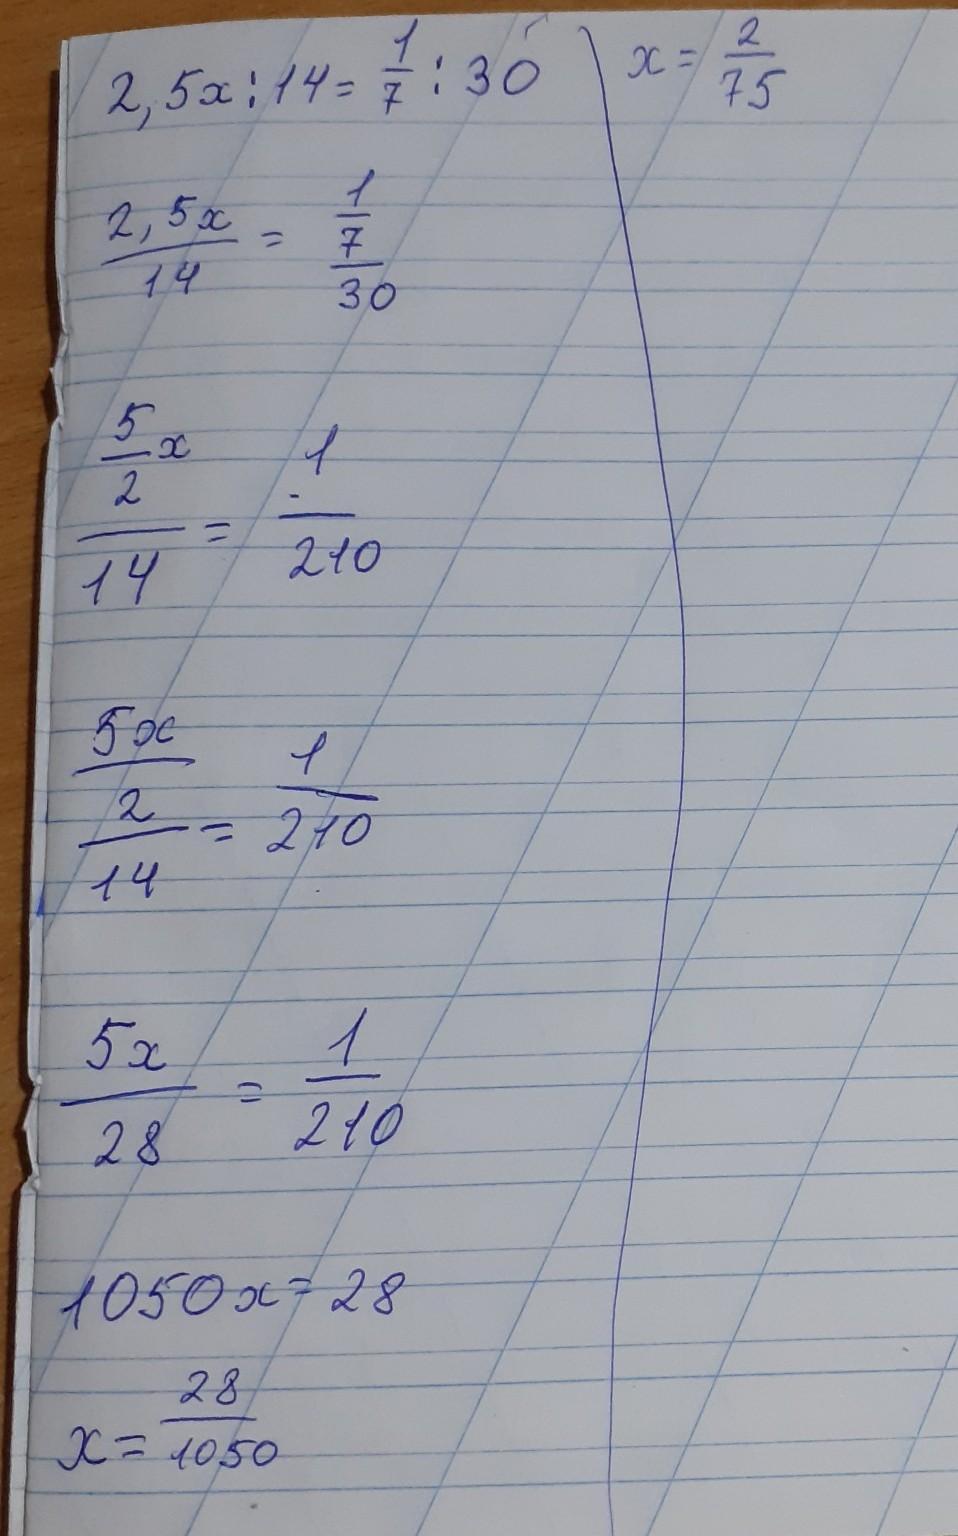 2,5x:14 = 1/7 : 30
2,5x/14 = 1/7/30
5/2 x/14 = 1/210
5x/2/14 = 1/210
5x/28 = 1/210
1050x = 28
x = 28/1050
x = 2/75